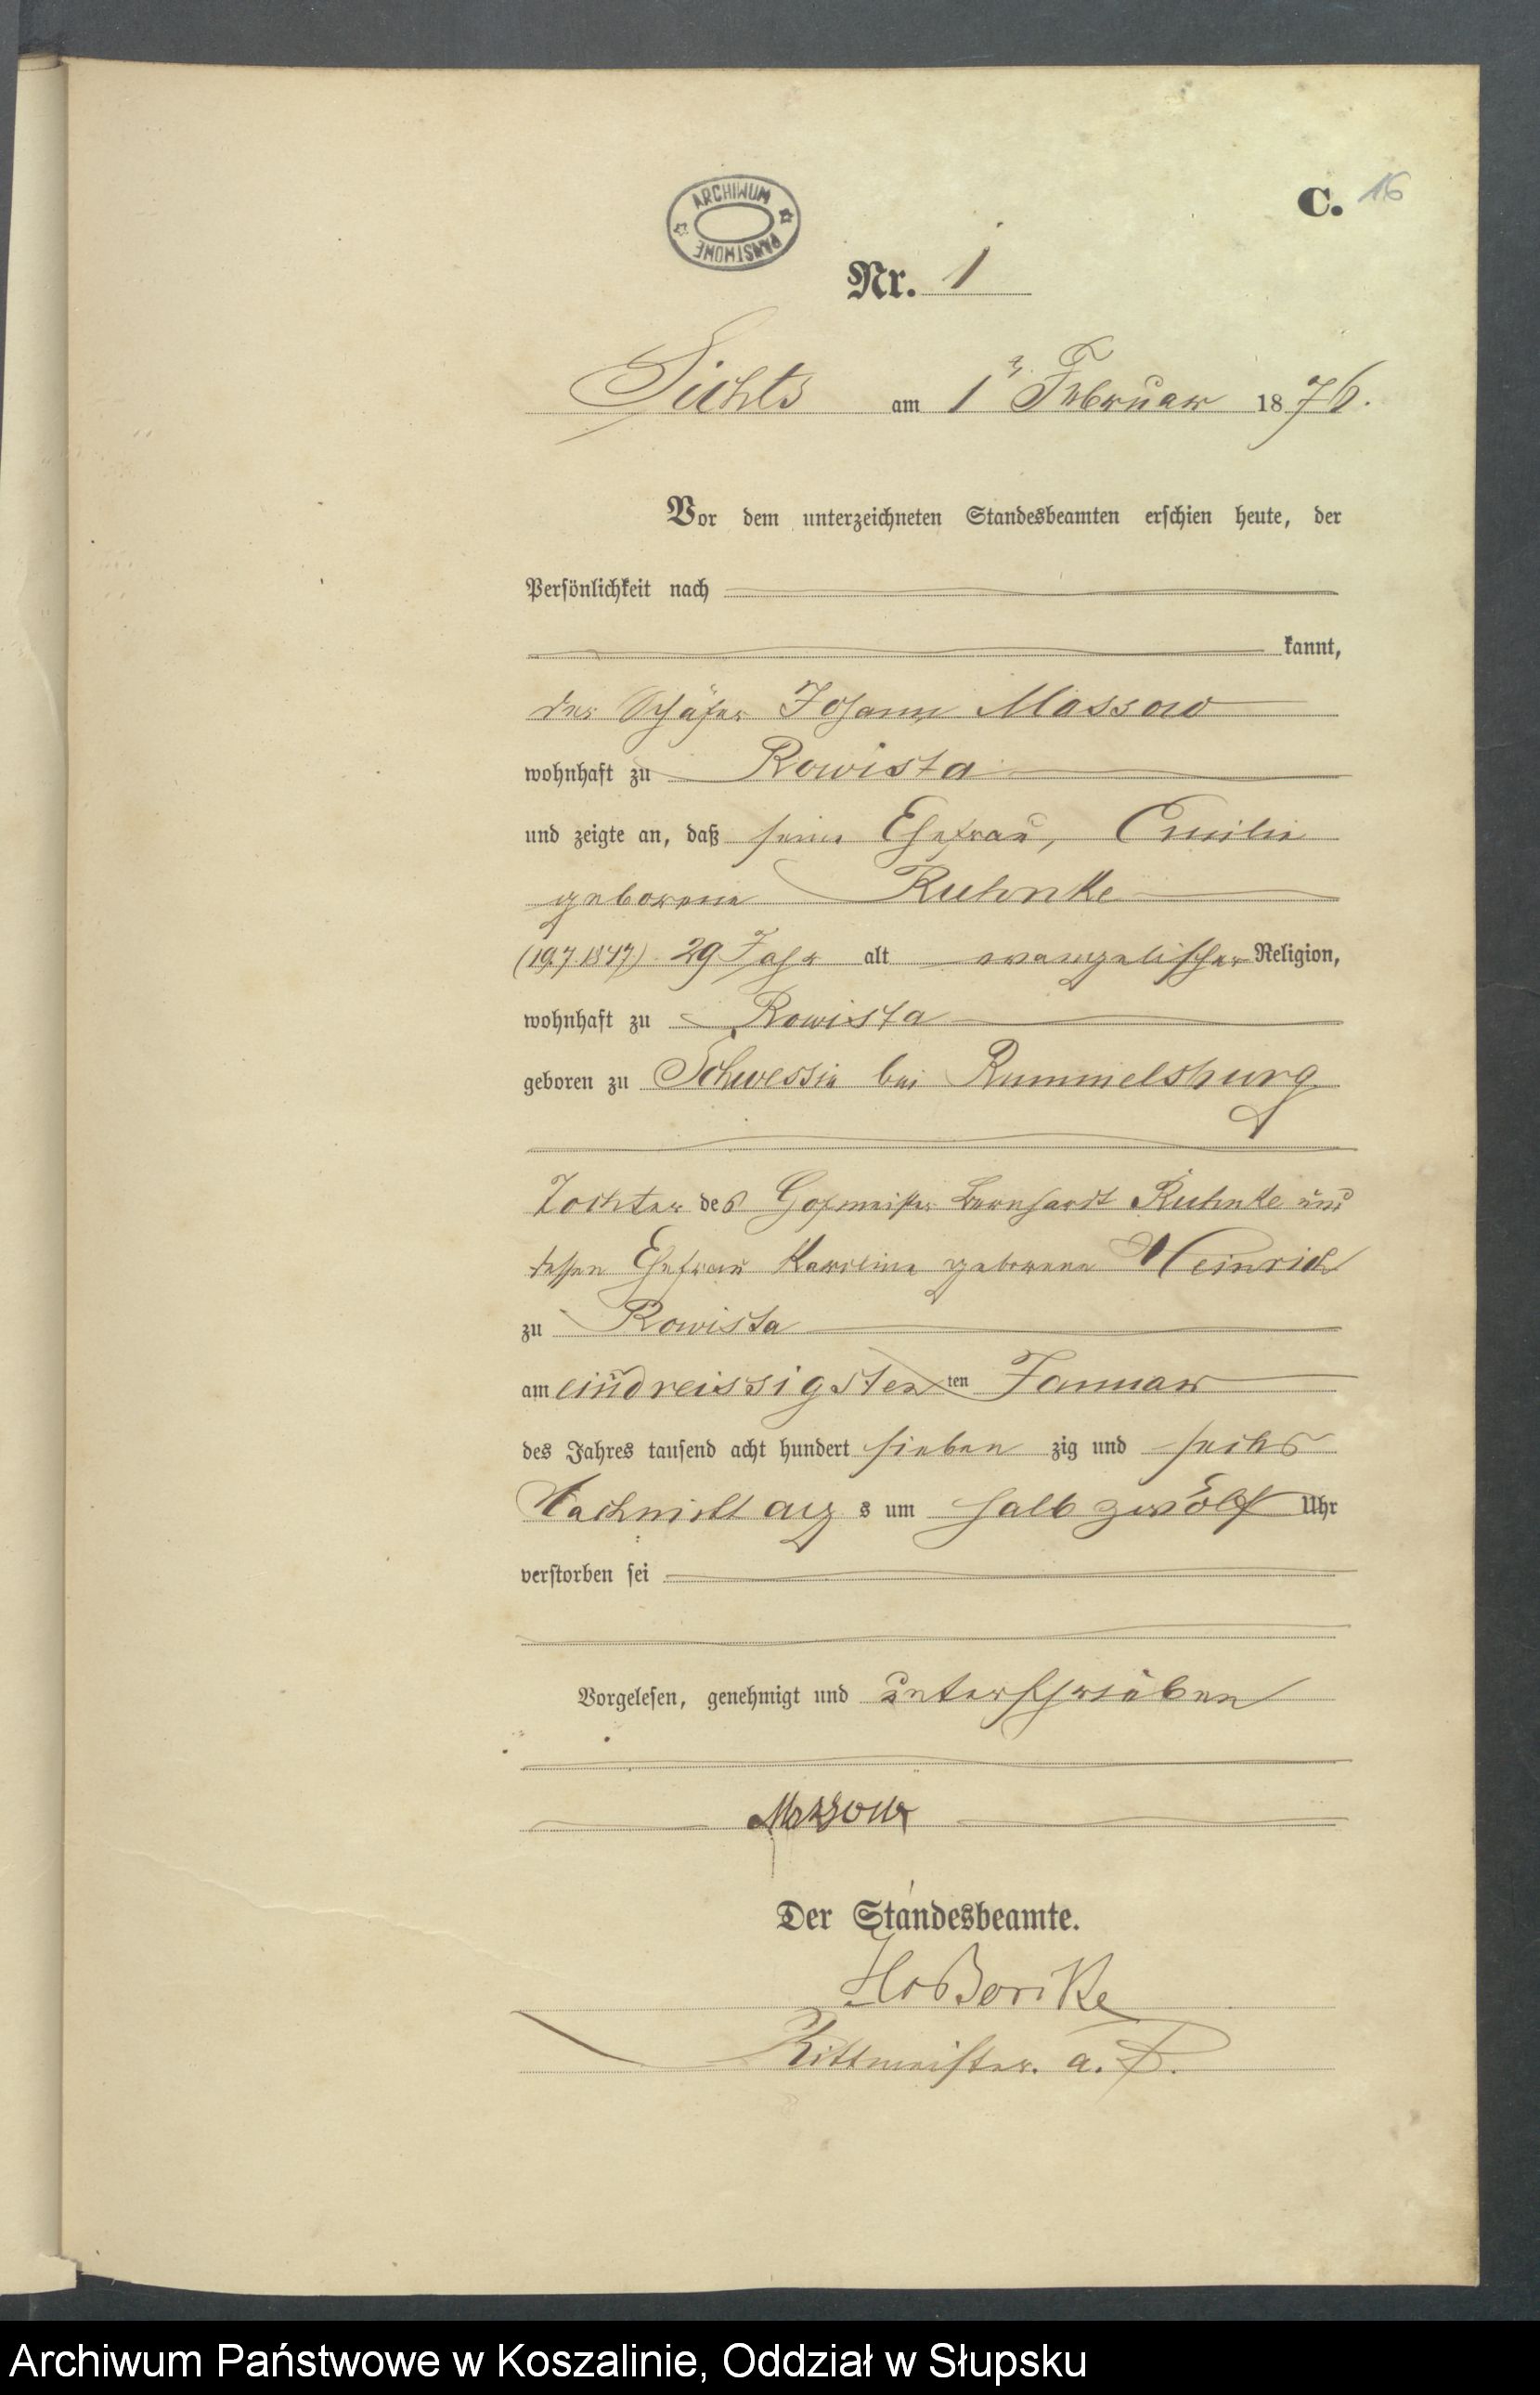 C. 16
ARCHIWUM PAŃSTWOWE
Nr. 1
am 1 Februar 1876.
Vor dem unterzeichneten Standesbeamten erschien heute, der
Persönlichkeit nach
kannt,
der Schäfer Johann Massow
wohnhaft zu Rowista
und zeigte an, daß seine Ehefrau, Emilie
geborene Ruhnke
29 Jahr alt evangelischer Religion,
wohnhaft zu Rowista
geboren zu Schwessin bei Rummelsburg
Tochter des Hofmeister Bernhardt Ruhnke und
dessen Ehefrau Karoline geborene Heinrich
zu Rowista
am eindreissigsten ten Januar
des Jahres tausend acht hundert sieben zig und sechs
Nachmittag s um halb zwölf Uhr
verstorben sei
Vorgelesen, genehmigt und unterschrieben
Massow
Der Standesbeamte.
Rittmeister. a. D.
Archiwum Państwowe w Koszalinie, Oddział w Słupsku